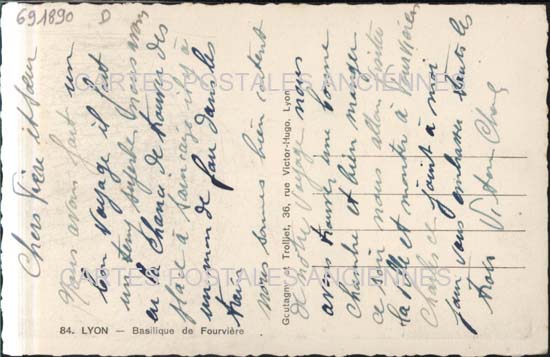 691890
Chers Frère et Sœur
Nous avons fait un
bon voyage il fait
un temps superbe nous avons
eu la Chance de trouver des
place à
un mon de fou dans les
train
nous sommes bien content
de notre voyage nous
avons trouver une bonne
Chambre et bien manger
ce soir nous allon visiter
la ville et monter à Fourvière
Charles ce joint à moi
pour vous embrasser toutes les
trois Victor Charles
Goutagny et Trolliet, 36, rue Victor-Hugo, Lyon
84. LYON — Basilique de Fourvière
CARTES POSTALES ANCIENNES
CARTES POSTALES ANCIENNES